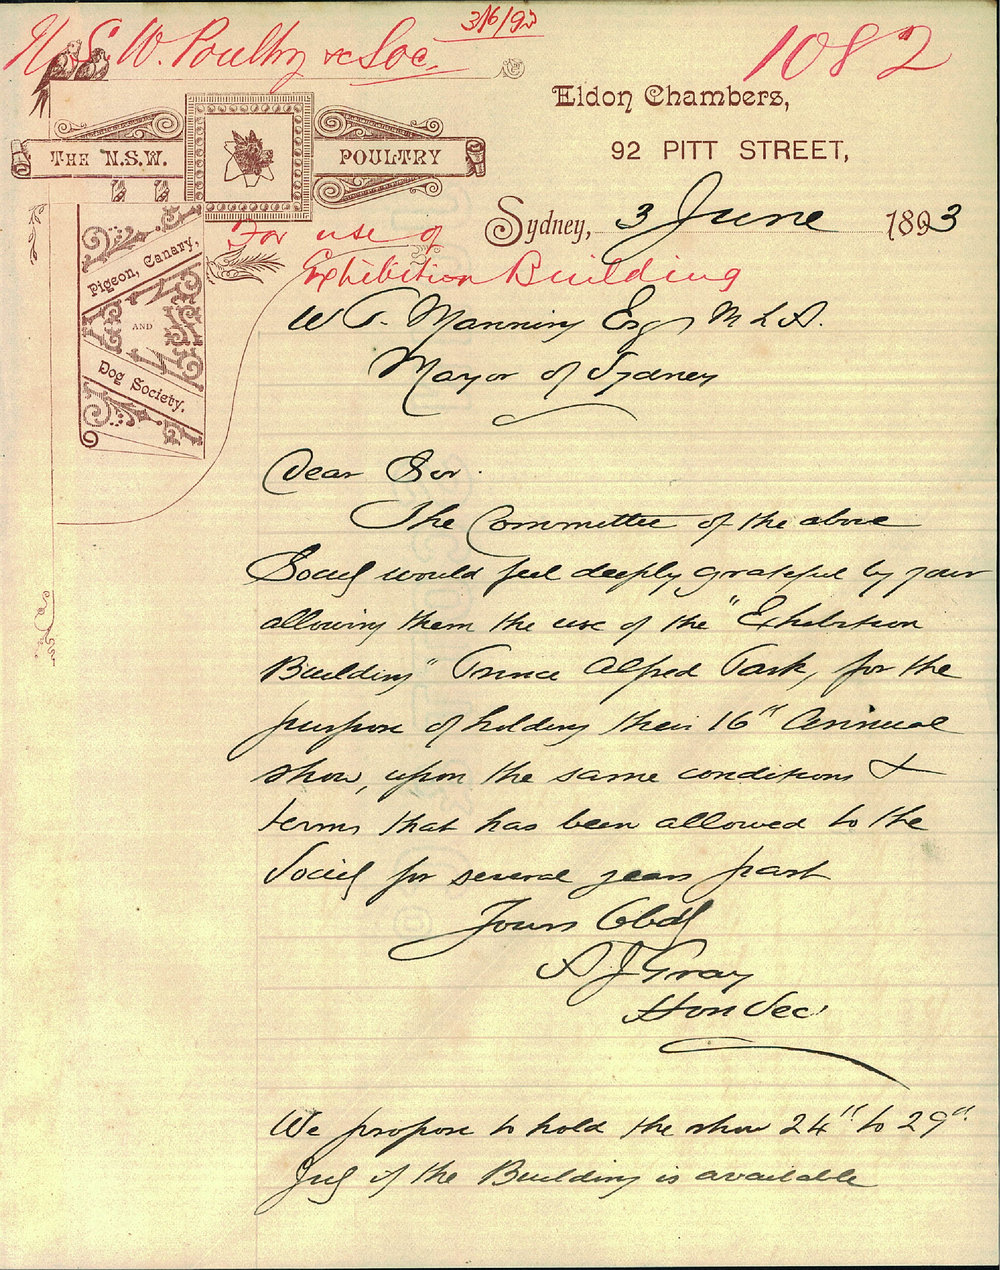 N.S.W. Poultry &c Soc. 3/6/93
1082
Eldon Chambers,
92 PITT STREET,
THE N.S.W. POULTRY
Pigeon, Canary,
AND
Dog Society.
Sydney, 3 June 1893
For use of
Exhibition Building
W P. Manning Esq M L A.
Mayor of Sydney
Dear Sir.
The Committee of the above
Society would feel deeply grateful by your
allowing them the use of the "Exhibition
Building" Prince Alfred Park, for the
purpose of holding their 16" Annual
show, upon the same conditions &
terms that has been allowed to the
Society for several years past
Yours Obdly
A J Gray
Hon Sec.
We propose to hold the show 24" to 29"
July if the Building is available